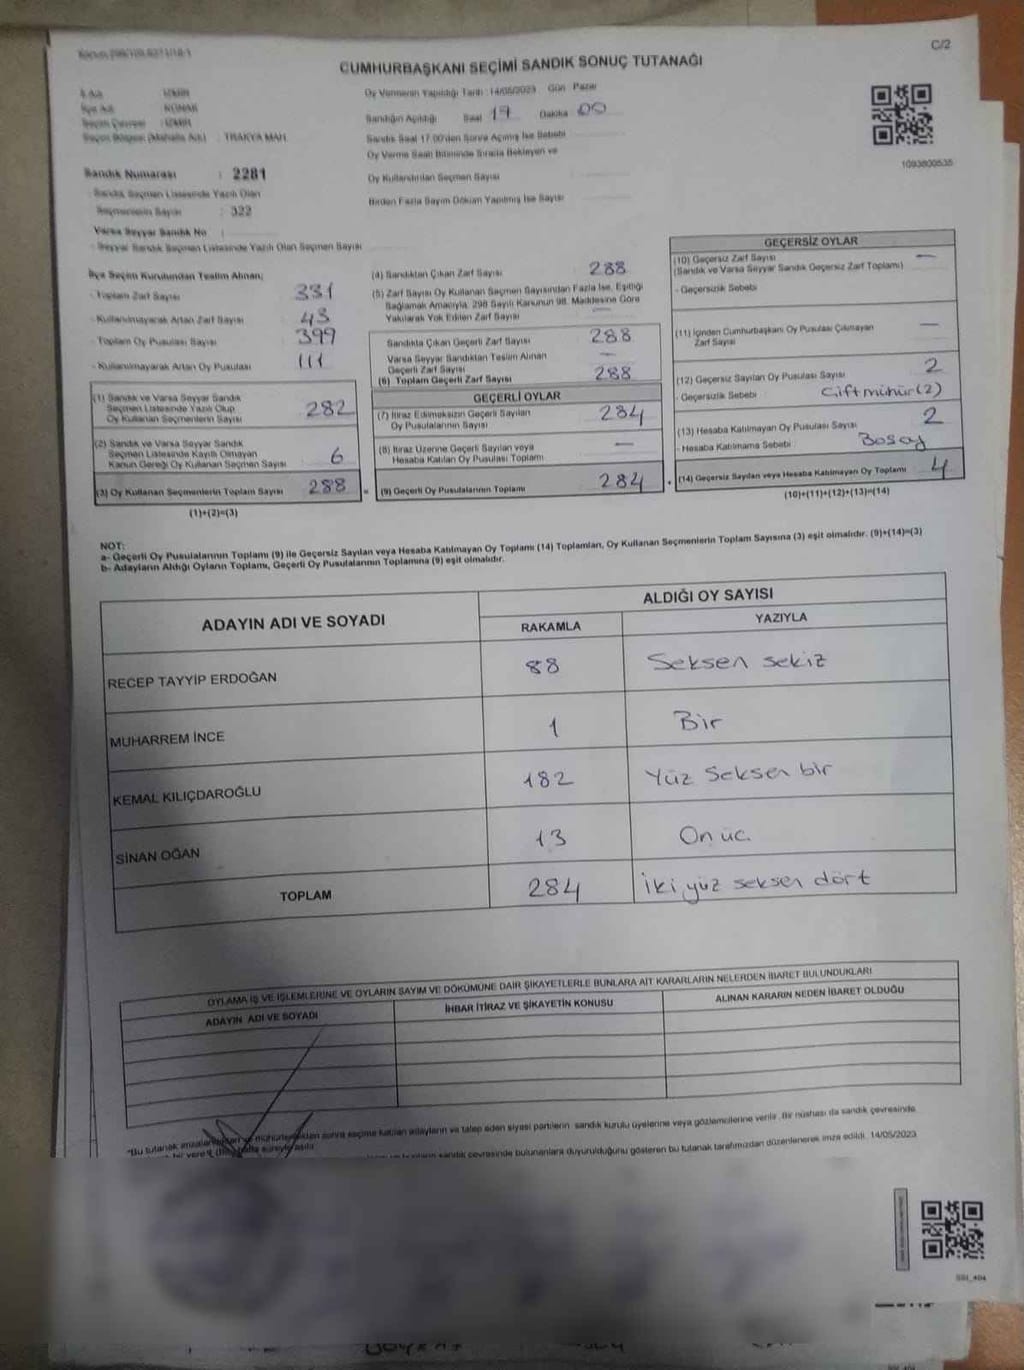 C/2
CUMHURBAŞKANI SEÇİMİ SANDIK SONUÇ TUTANAĞI
İl Adı : İZMİR
İlçe Adı : KONAK
Seçim Çevresi : İZMİR
Seçim Bölgesi (Mahalle Adı) : TRAKYA MAH.
Sandık Numarası : 2281
Sandık Seçmen Listesinde Yazılı Olan
Seçmenlerin Sayısı : 322
Varsa Seyyar Sandık No :
- Seyyar Sandık Seçmen Listesinde Yazılı Olan Seçmen Sayısı
Oy Vermenin Yapıldığı Tarih : 14/05/2023 Gün Pazar
Sandığın Açıldığı Saat 17 Dakika 00
Sandık Saat 17.00'den Sonra Açılmış İse Sebebi
Oy Verme Saati Bitiminde Sırada Bekleyen ve
Oy Kullandırılan Seçmen Sayısı
Birden Fazla Sayım Döküm Yapılmış İse Sayısı
1093800535
İlçe Seçim Kurulundan Teslim Alınan;
- Toplam Zarf Sayısı 331
- Kullanılmayarak Artan Zarf Sayısı 43
- Toplam Oy Pusulası Sayısı 399
- Kullanılmayarak Artan Oy Pusulası 111
(1) Sandık ve Varsa Seyyar Sandık
Seçmen Listesinde Yazılı Olup
Oy Kullanan Seçmenlerin Sayısı 282
(2) Sandık ve Varsa Seyyar Sandık
Seçmen Listesinde Kayıtlı Olmayan
Kanun Gereği Oy Kullanan Seçmen Sayısı 6
(3) Oy Kullanan Seçmenlerin Toplam Sayısı 288
(1)+(2)=(3)
(4) Sandıktan Çıkan Zarf Sayısı 288
(5) Zarf Sayısı Oy Kullanan Seçmen Sayısından Fazla İse, Eşitliği
Sağlamak Amacıyla, 298 Sayılı Kanunun 98. Maddesine Göre
Yakılarak Yok Edilen Zarf Sayısı —
Sandıkta Çıkan Geçerli Zarf Sayısı 288
Varsa Seyyar Sandıktan Teslim Alınan
Geçerli Zarf Sayısı —
(6) Toplam Geçerli Zarf Sayısı 288
GEÇERLİ OYLAR
(7) İtiraz Edilmeksizin Geçerli Sayılan
Oy Pusulalarının Sayısı 284
(8) İtiraz Üzerine Geçerli Sayılan veya
Hesaba Katılan Oy Pusulası Toplamı —
= (9) Geçerli Oy Pusulalarının Toplamı 284
GEÇERSİZ OYLAR
(10) Geçersiz Zarf Sayısı —
(Sandık ve Varsa Seyyar Sandık Geçersiz Zarf Toplamı)
- Geçersizlik Sebebi
(11) İçinden Cumhurbaşkanı Oy Pusulası Çıkmayan
Zarf Sayısı —
(12) Geçersiz Sayılan Oy Pusulası Sayısı 2
- Geçersizlik Sebebi Çift mühür (2)
(13) Hesaba Katılmayan Oy Pusulası Sayısı 2
- Hesaba Katılmama Sebebi Bosoy
+ (14) Geçersiz Sayılan veya Hesaba Katılmayan Oy Toplamı 4
(10)+(11)+(12)+(13)=(14)
NOT:
a- Geçerli Oy Pusulalarının Toplamı (9) ile Geçersiz Sayılan veya Hesaba Katılmayan Oy Toplamı (14) Toplamları, Oy Kullanan Seçmenlerin Toplam Sayısına (3) eşit olmalıdır. (9)+(14)=(3)
b- Adayların Aldığı Oyların Toplamı, Geçerli Oy Pusulalarının Toplamına (9) eşit olmalıdır.
ADAYIN ADI VE SOYADI ALDIĞI OY SAYISI
RAKAMLA YAZIYLA
RECEP TAYYİP ERDOĞAN 88 Seksen sekiz
MUHARREM İNCE 1 Bir
KEMAL KILIÇDAROĞLU 182 Yüz Seksen bir
SİNAN OĞAN 13 On üc.
TOPLAM 284 İki yüz seksen dört
OYLAMA İŞ VE İŞLEMLERİNE VE OYLARIN SAYIM VE DÖKÜMÜNE DAİR ŞİKAYETLERLE BUNLARA AİT KARARLARIN NELERDEN İBARET BULUNDUKLARI
ADAYIN ADI VE SOYADI İHBAR İTİRAZ VE ŞİKAYETİN KONUSU ALINAN KARARIN NEDEN İBARET OLDUĞU
"Bu tutanak mühürlendikten sonra seçime katılan adayların ve talep eden siyasi partilerin sandık kurulu üyelerine veya gözlemcilerine verilir. Bir nüshası da sandık çevresinde
sandık çevresinde bulunanlara duyurulduğunu gösteren bu tutanak tarafımızdan düzenlenerek imza edildi. 14/05/2023